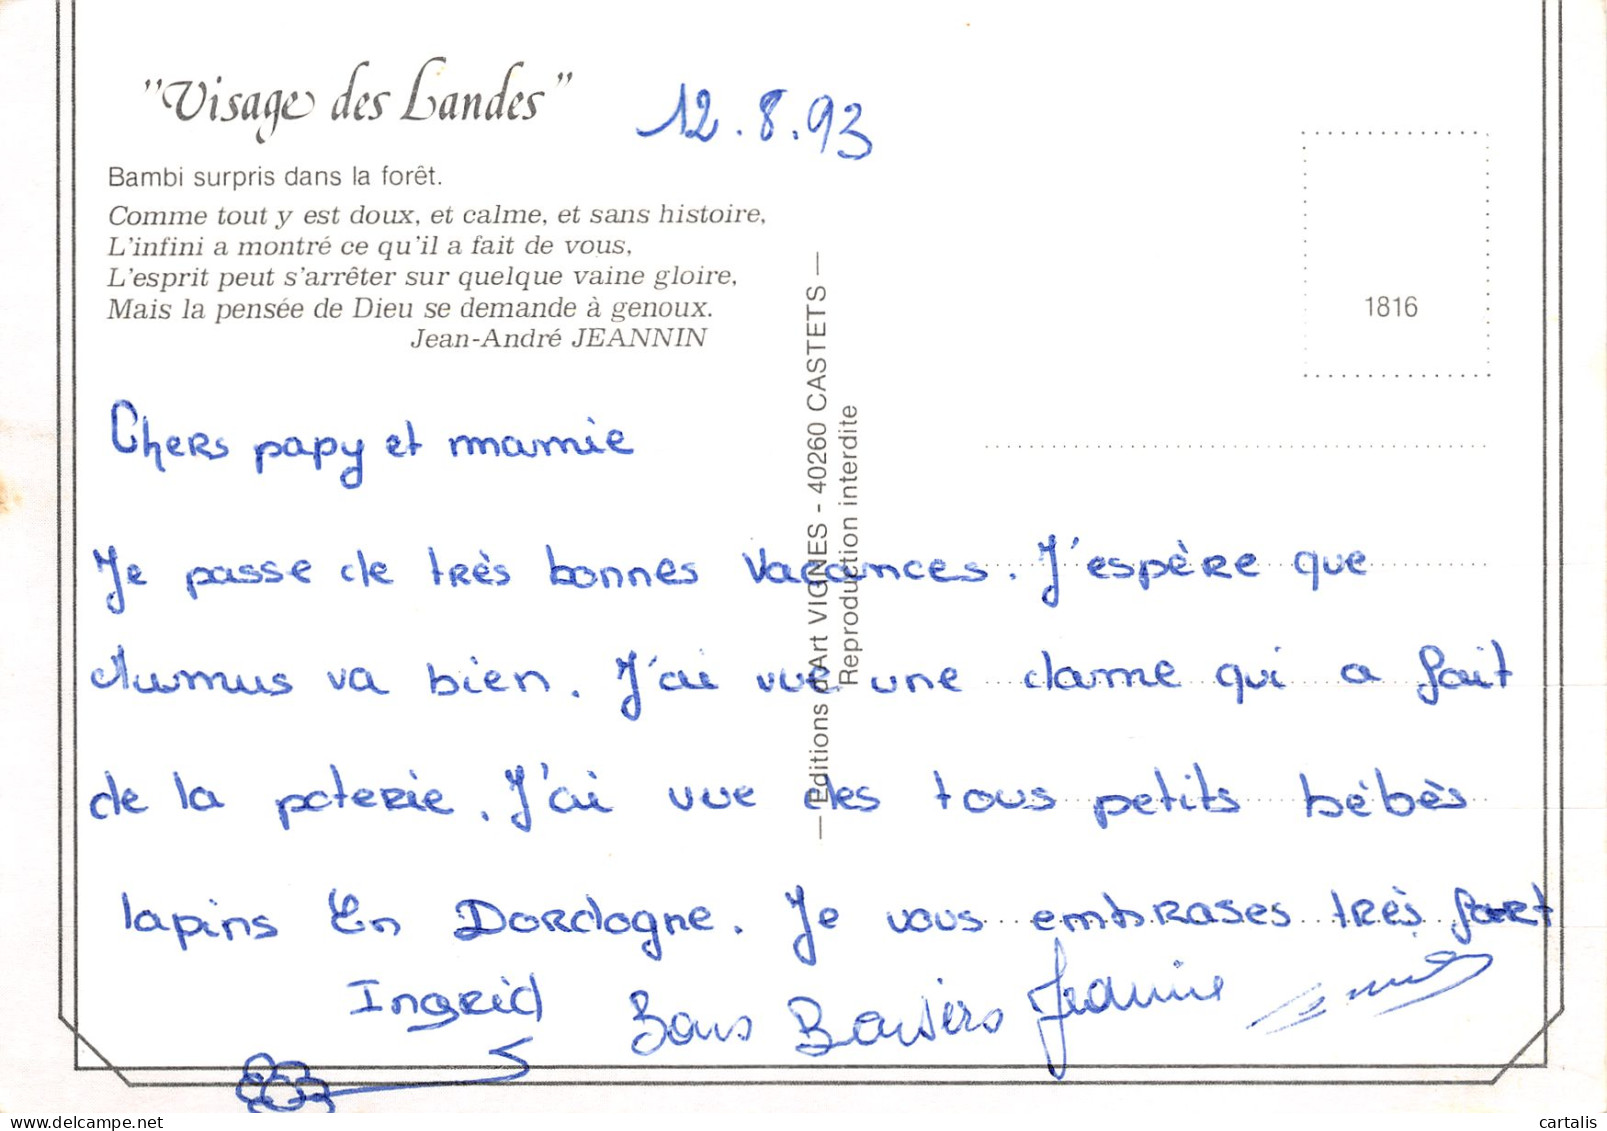 "Visage des Landes"
12.8.93
Bambi surpris dans la forêt.
Comme tout y est doux, et calme, et sans histoire,
L'infini a montré ce qu'il a fait de vous,
L'esprit peut s'arrêter sur quelque vaine gloire,
Mais la pensée de Dieu se demande à genoux.
Jean-André JEANNIN
1816
— Editions d'Art VIGNES - 40260 CASTETS —
Reproduction interdite
Chers papy et mamie
Je passe de très bonnes vacances. J'espère que
va bien. J'ai vue une dame qui a fait
de la poterie. J'ai vue des tous petits bébés
lapins En Dordogne. Je vous embrases très fort
Ingrid
Bons Baisers Jeanine
cartalis.delcampe.net